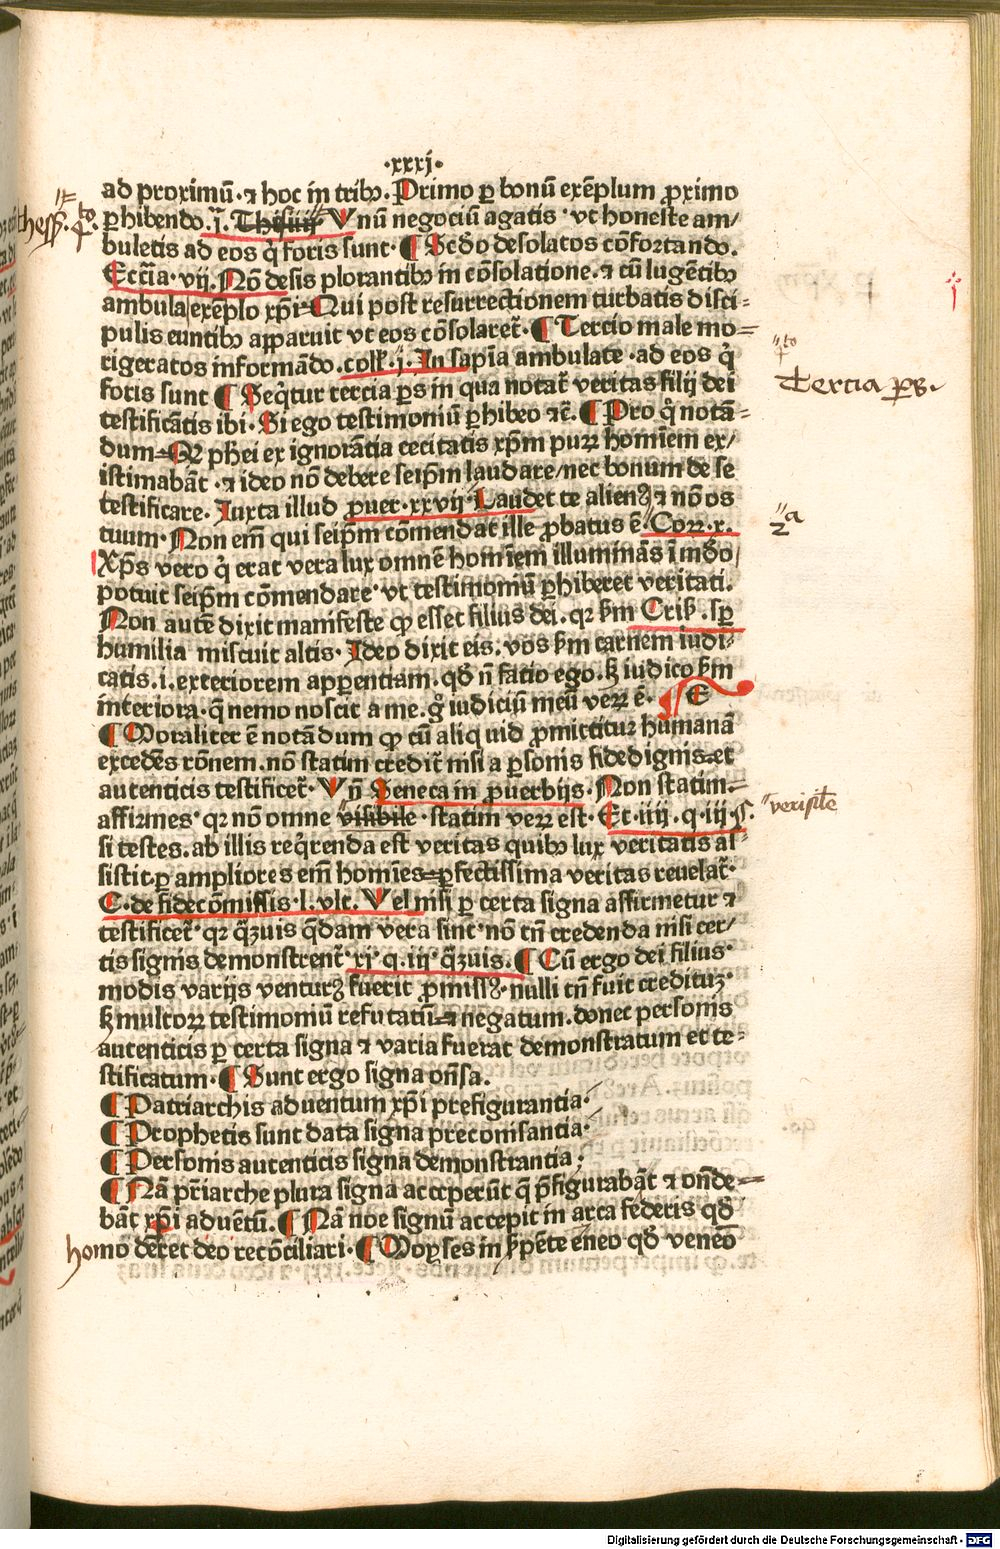 ·xxxj·
ad proximū·⁊ hoc in tribꝫ·Primo ꝑ bonū exēplum ꝓximo
ꝑhibendo.j. Vnū negociū agatis·vt honeste am/
buletis ad eos q̇ foris sunt·¶ Scd̄o desolatos cōfortando.
Ecctīa·vij.Nō desis plorantibꝫ in cōsolatione.⁊ cū lugētibꝫ
ambula exēplo xp̄i Qui post resurrectionem turbatis disci-
pulis euntibꝫ apparuit vt eos cōsolaret̄·¶ Tercio male mo=
rigeratos informādo.coll̄.j·In sapīa ambulate·ad eos q̇
foris sunt ¶ Seq̇tur tercia ꝑs in qua notat̄ veritas filij dei
testificātis ibi·Si ego testimoniū ꝑhibeo ⁊c̄.¶ Pro q̇ notā=
dum phei ex ignorātia cecitatis xp̄m puꝝ homīem ex/
istimabāt·⁊ ideo nō debere seip̄m laudare/nec bonum de se
testificare.Iuxta illud ꝓuer·xxvij·Laudet te alienꝰ ⁊ nō os
tuum·Non em̄ qui seip̄m cōmendat ille ꝓbatus ē·Coꝝ.x.
Xp̄s vero q̇ erat vera lux omnē homīem illuminās ī mūdo
potuit seip̄m cōmendare·vt testimoniū ꝑhiberet veritati.
Non autē dixit manifeste ꝙ esset filius dei.qꝛ ẜm Crisꝰ.sꝑ
humilia miscuit altis·Ideo dixit eis·vos ẜm carnem iudi-
catis.i.exteriorem apparentiam.qd̄ n̄ facio ego.sꝫ iudico ẜm
interiora·q̄ nemo noscit a me.g̊ iudiciū meū veꝝ ē·
¶ Moraliter ē notādum ꝙ cū aliquid ꝓmittitur humanā
excedēs rōnem.nō statim credit̄ nisi a ꝑsonis fidedignis et
autenticis testificet̄·Vn̄ Seneca in ꝓuerbijs·Non statim
affirmes·qꝛ nō omne visibile·statim veꝝ est·Et·iiij·q·iij·§.
si testes.ab illis req̇renda est veritas quibꝫ lux veritatis as-
sistit.ꝑ ampliores em̄ homīes ꝑfectissima veritas reuelat̄·
C·de fideicōmissis·l.vlt.Vel nisi ꝑ certa signa affirmetur ⁊
testificet̄·qꝛ q̄ꝫuis q̄dam vera sint·nō tn̄ credenda nisi cer/
tis signis demonstrent̄·xj·q.iij·q̄ꝫuis.¶ Cū ergo dei filius·
modis varijs venturꝰ fuerit ꝓmissꝰ·nulli tn̄ fuit credituꝫ·
sꝫ multoꝝ testimoniū refutatū ⁊ negatum.donec personis
autenticis ꝑ certa signa ⁊ varia fuerat demonstratum et te-
stificatum·¶ Sunt ergo signa on̄sa.
¶ Patriarchis aduentum xp̄i prefigurantia·
¶ Prophetis sunt data signa preconisantia·
¶ Personis autenticis signa demonstrantia;
¶ Nā pr̄iarche plura signa acceperūt q̄ p̄figurabāt ⁊ onde=
bāt xp̄i aduētū.¶ Nā noe signū accepit in arca federis qd̄
homo deret deo recōciliari·¶ Moyses in sꝑēte eneo qd̄ veneō
Tercia ꝑs.
2ª